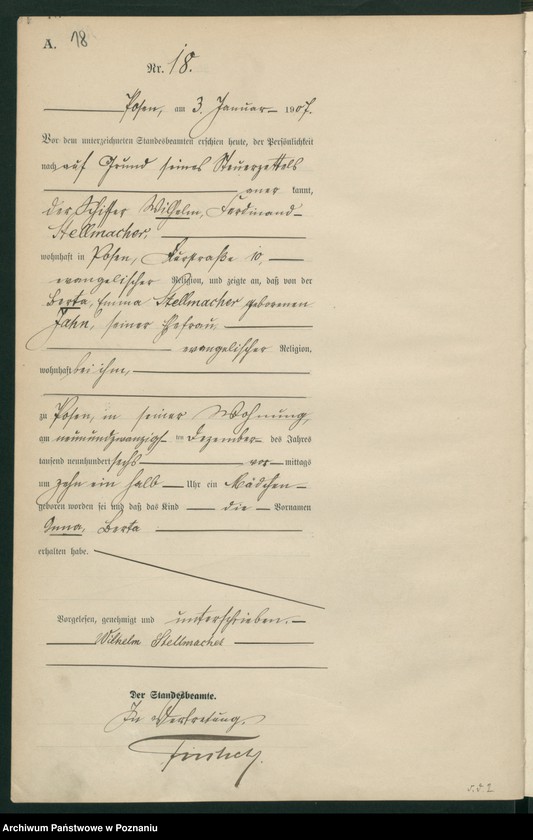 A. 18
Nr. 18.
Posen, am 3. Januar 1907.
Vor dem unterzeichneten Standesbeamten erschien heute, der Persönlichkeit
nach auf Grund seines Steuerzettels
aner kannt,
der Schiffer Wilhelm, Ferdinand
Stellmacher,
wohnhaft in Posen, 10,
evangelischer Religion, und zeigte an, daß von der
Berta, Emma Stellmacher geborenen
Jahn, seiner Ehefrau,
evangelischer Religion,
wohnhaft bei ihm,
zu Posen, in seiner Wohnung,
am neunundzwanzigsten Dezember des Jahres
tausend neunhundert sechs vor mittags
um zehn ein halb Uhr ein Mädchen
geboren worden sei und daß das Kind die Vornamen
Anna, Berta
erhalten habe.
Vorgelesen, genehmigt und unterschrieben.
Wilhelm Stellmacher
Der Standesbeamte.
In Vertretung.
Archiwum Państwowe w Poznaniu